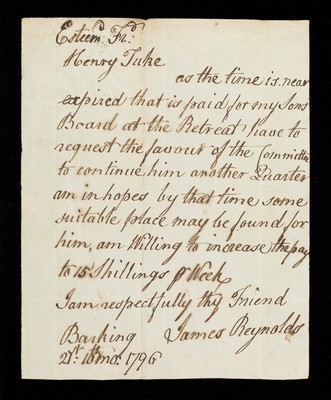 Esteemd. Frd.
Henry Tuke
as the time is near
expired that is paid for my Sons
Board at the Retreat have to
request the favour of the Committee
to continue him another Quarter
am in hopes by that time some
suitable place may be found for
him, am Willing to increase the pay
to 15 Shillings P Week
I am respectfully thy Friend
Barking James Reynolds
mo. 1796